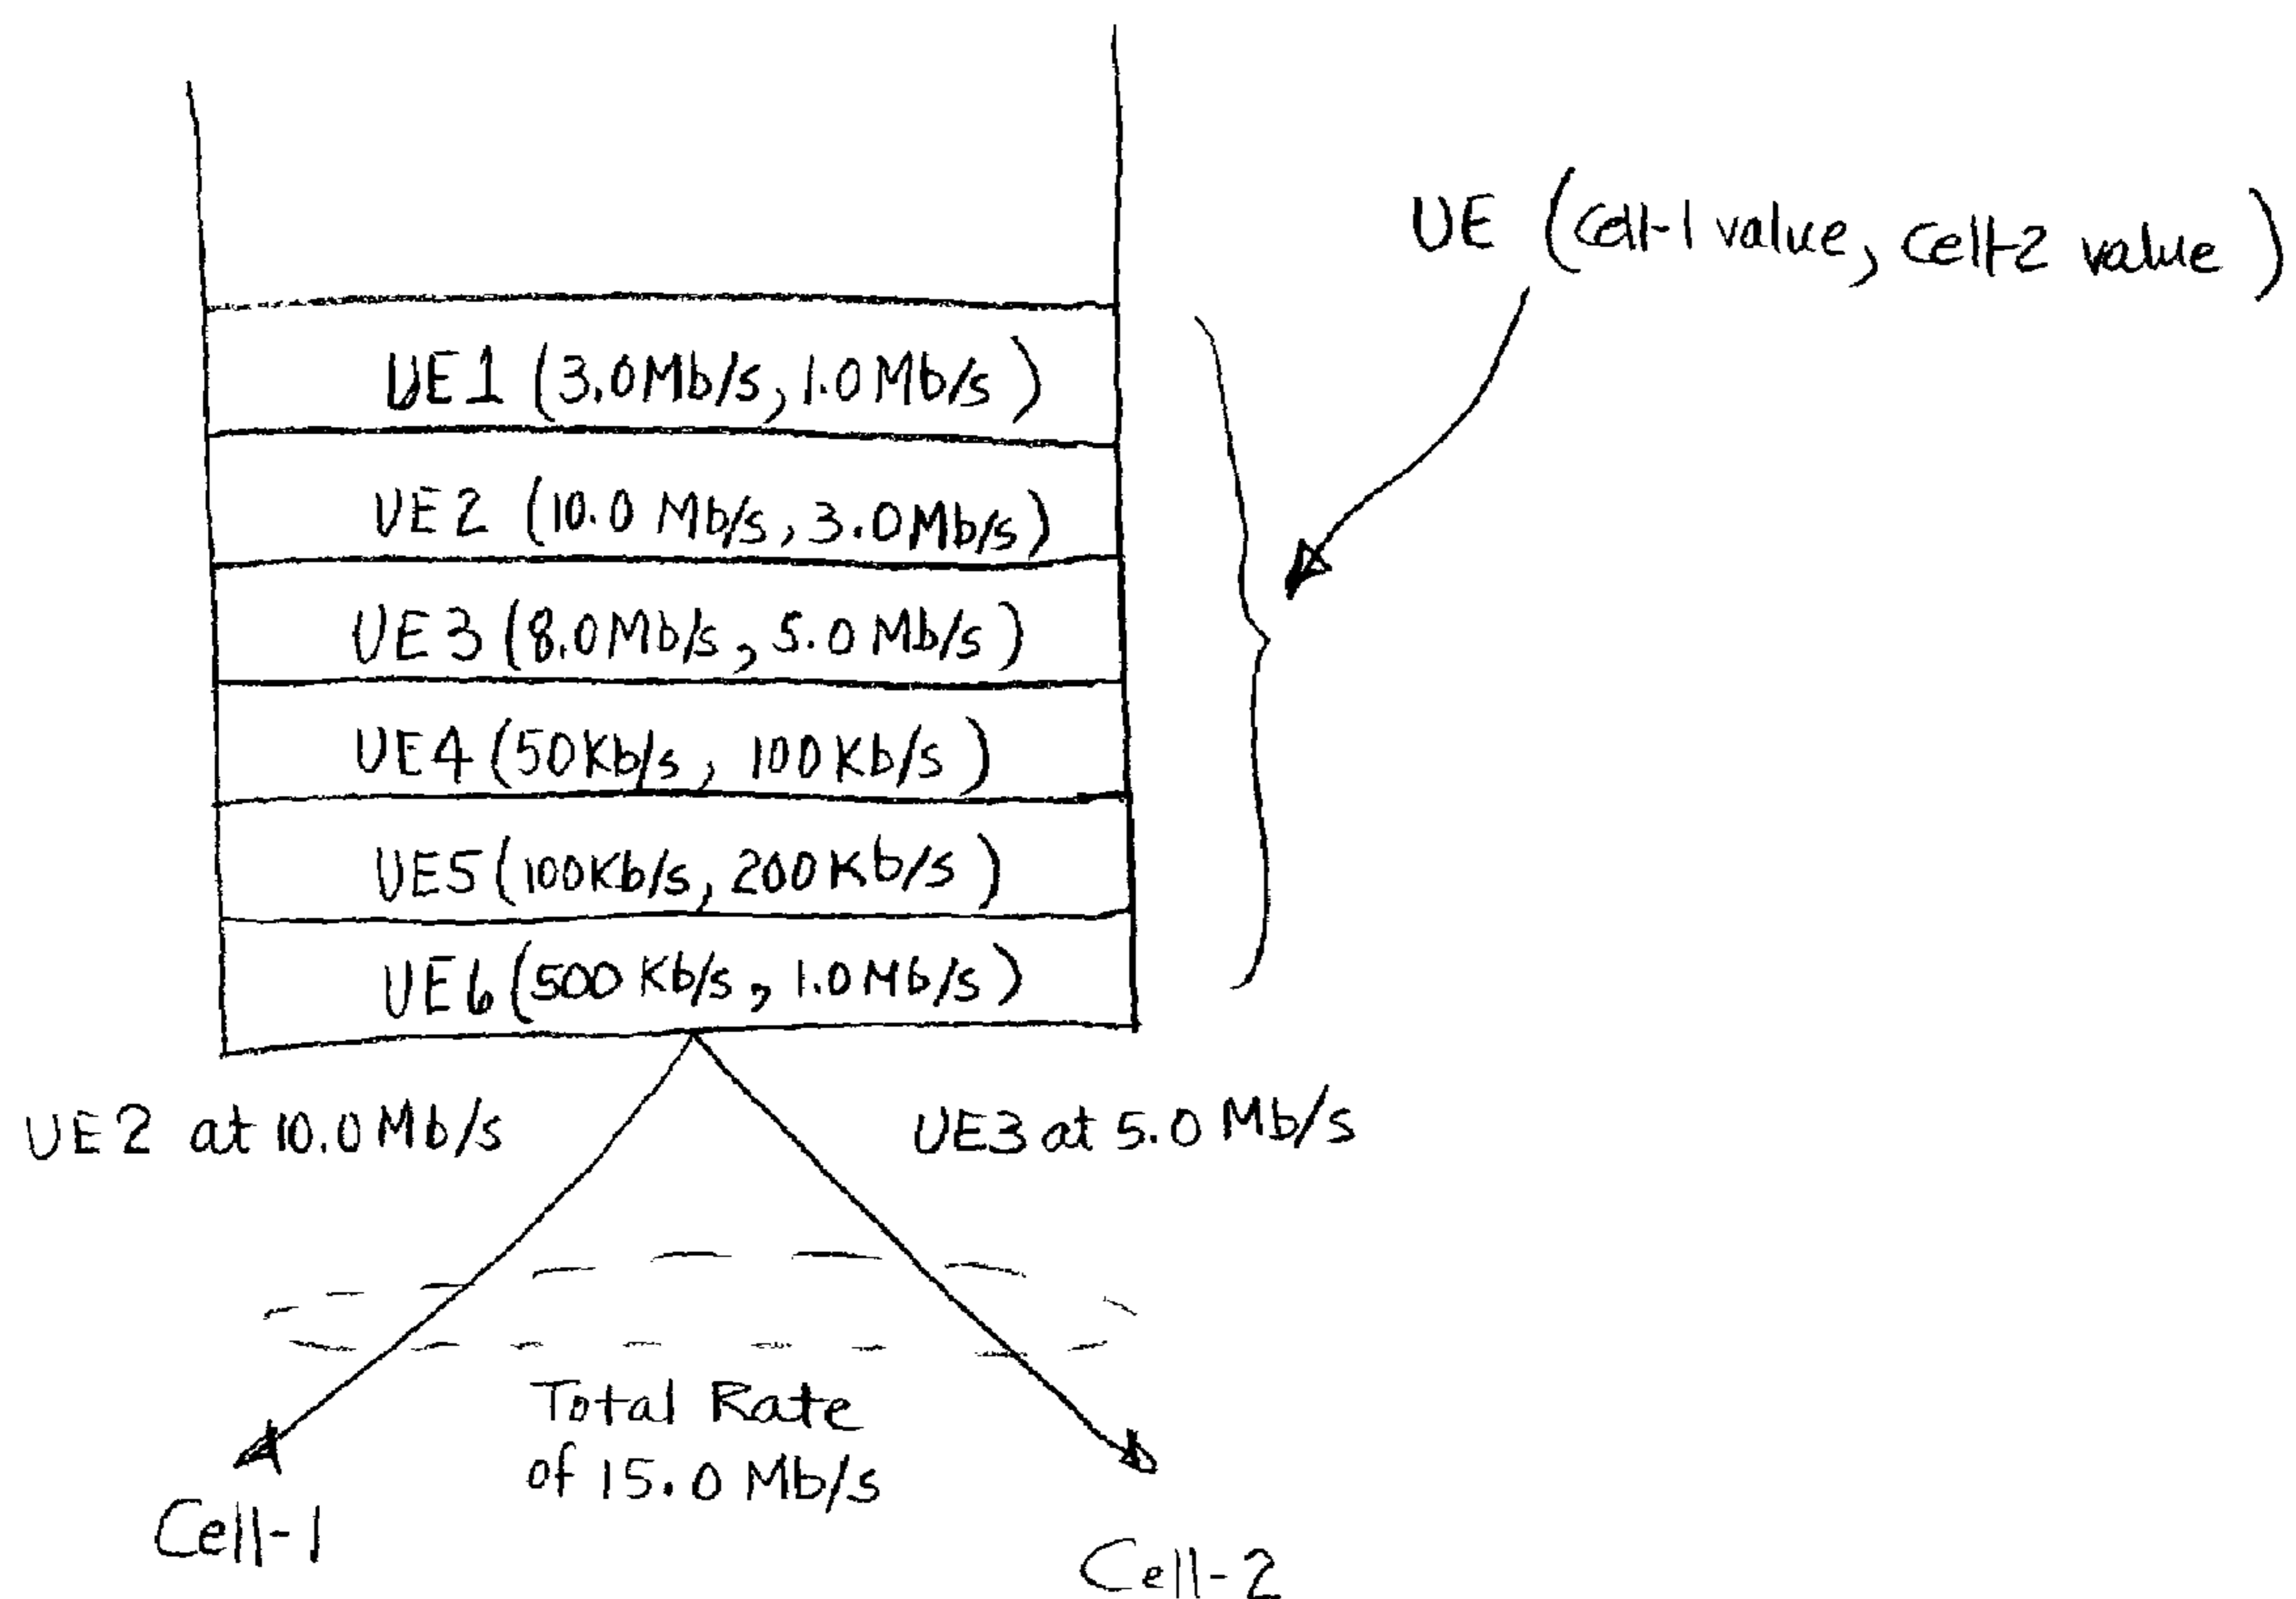 UE (Cell-1 value, Cell-2 value)
UE1 (3.0Mb/s, 1.0Mb/s)
UE2 (10.0 Mb/s, 3.0Mb/s)
UE3 (8.0Mb/s, 5.0Mb/s)
UE4 (50Kb/s, 100Kb/s)
UE5 (100Kb/s, 200Kb/s)
UE6 (500 Kb/s, 1.0Mb/s)
UE2 at 10.0Mb/s
UE3 at 5.0 Mb/s
Total Rate
of 15.0 Mb/s
Cell-1
Cell-2